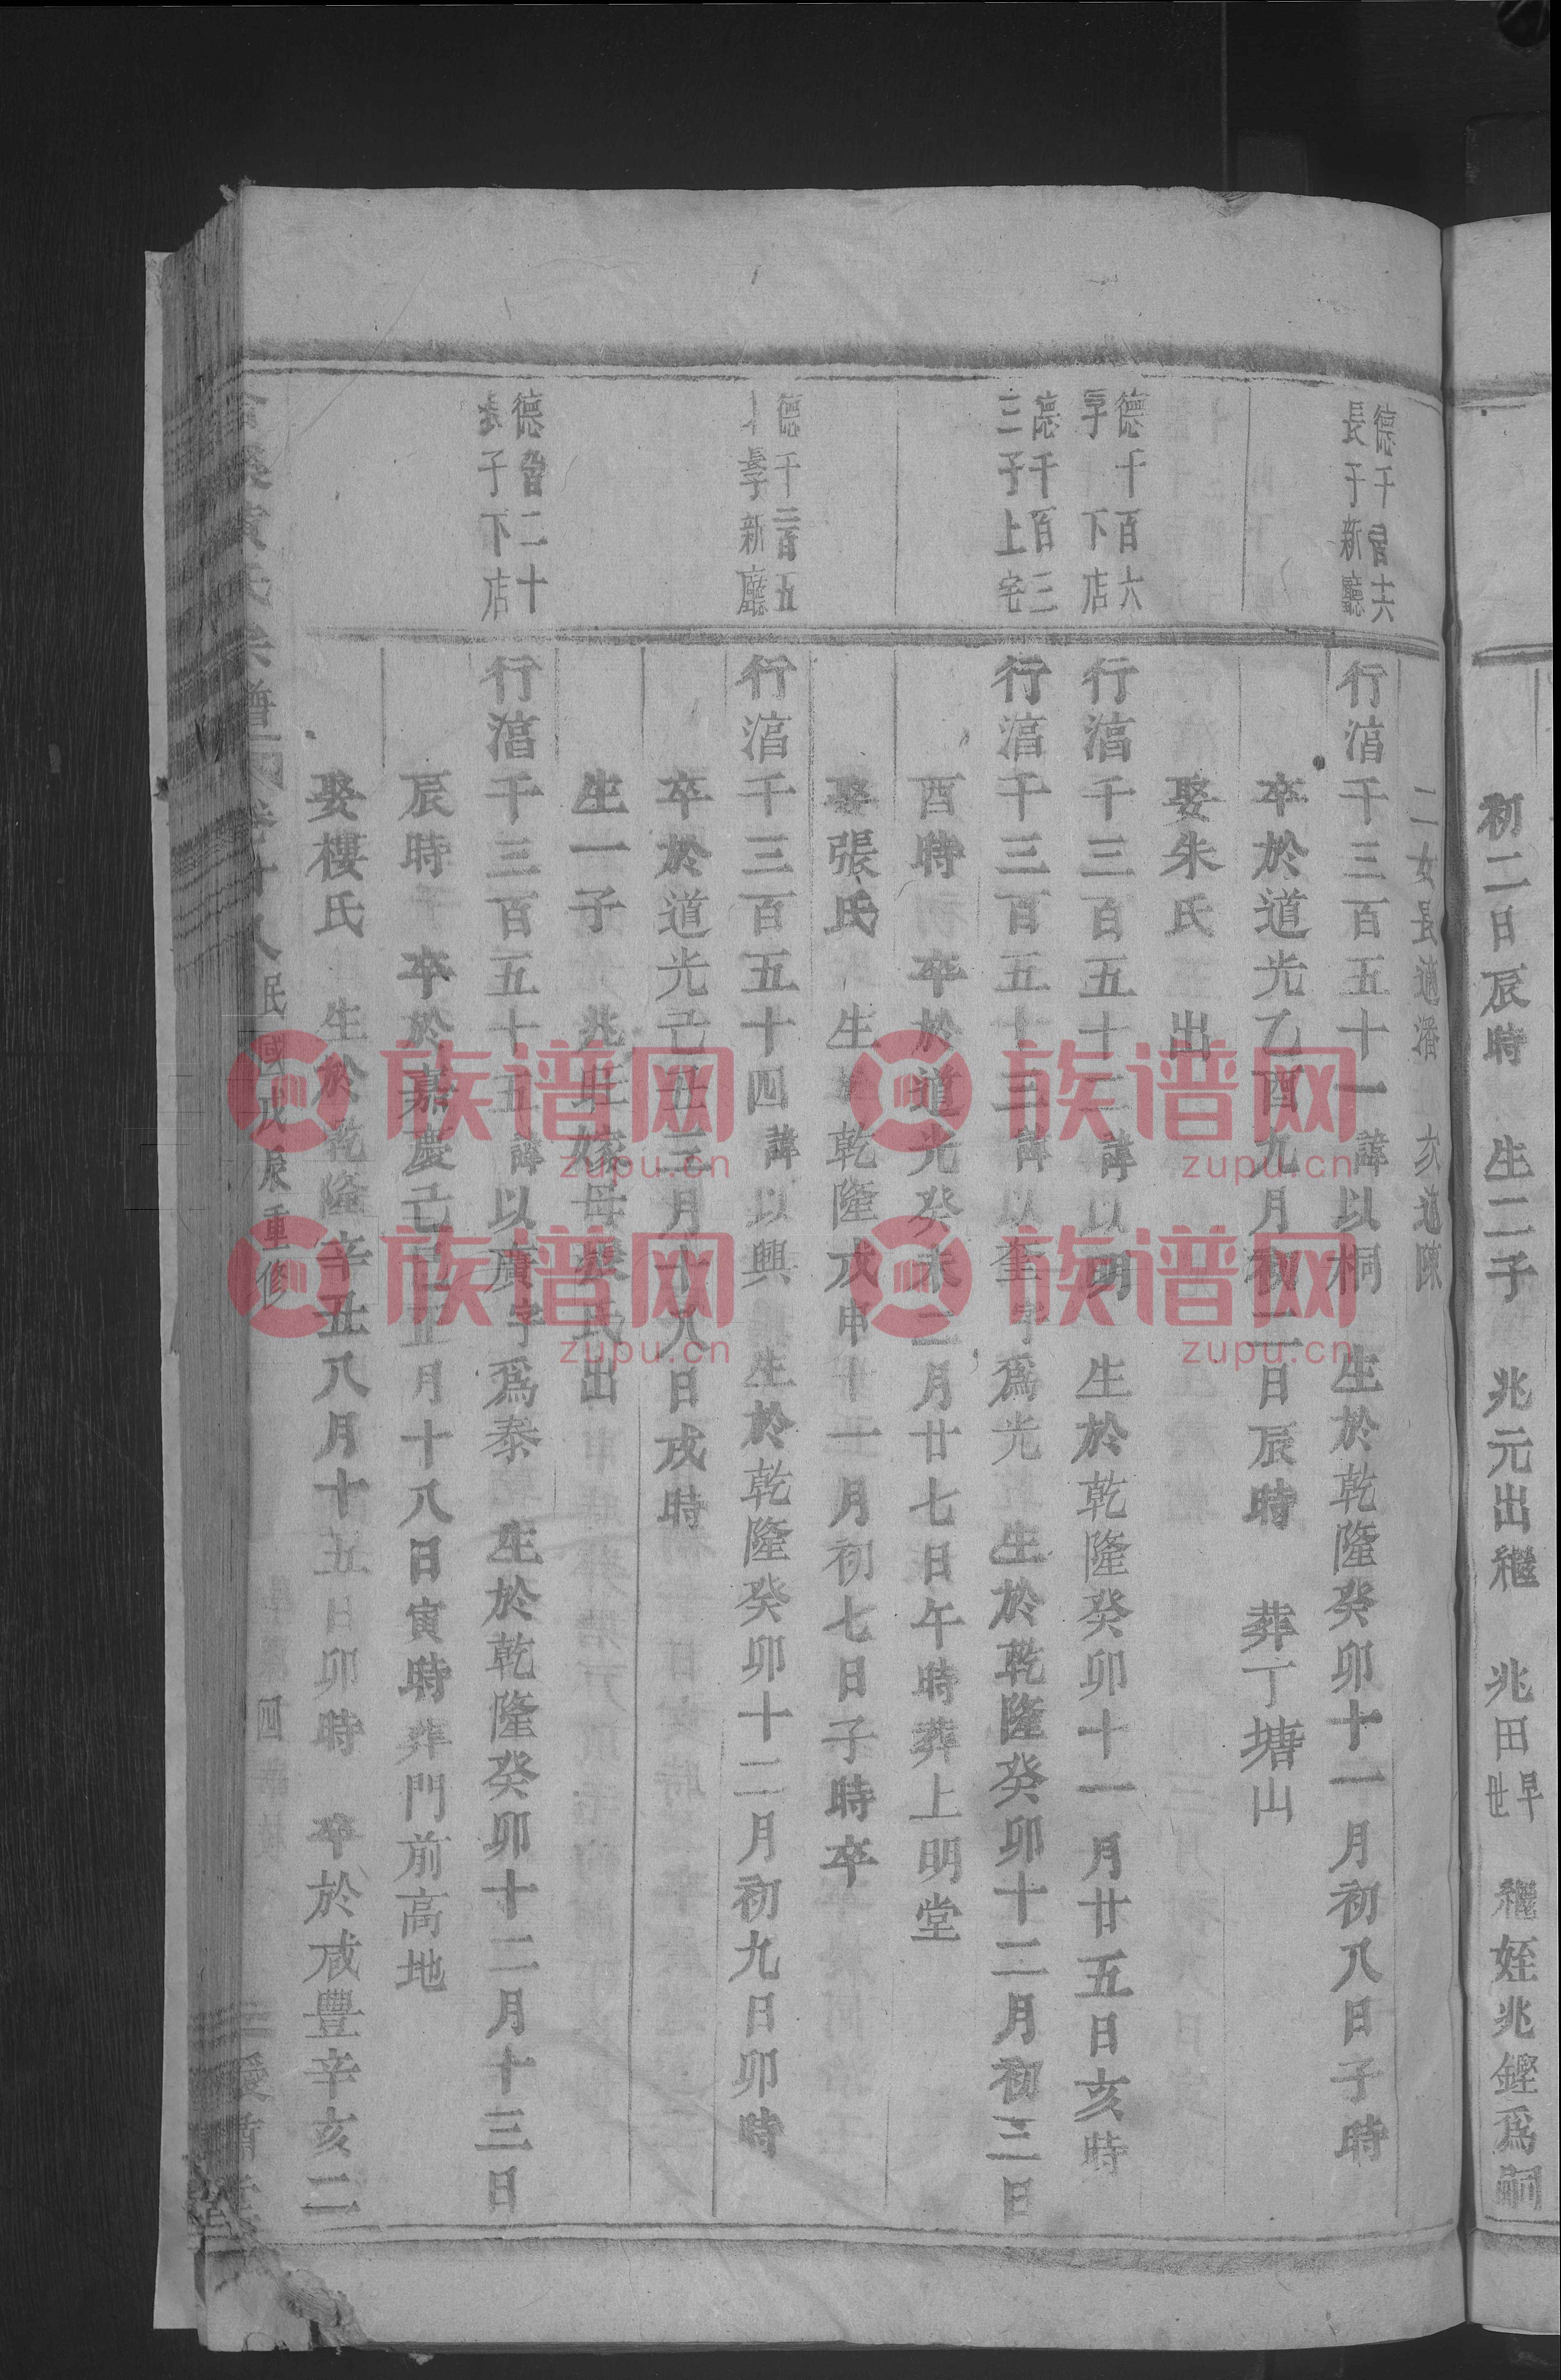 初二日辰時　生二子　兆元出繼　兆田早世　繼姪兆鏗爲嗣
二女長適潘　次適陳
德千晉六
長子新廳
行湻千三百五十一諱以桐　生於乾隆癸卯十一月初八日子時
卒於道光乙酉九月初二日辰時　葬丁塘山
娶朱氏　出
德千百六
子　下店
行湻千三百五十二諱以明　生於乾隆癸卯十一月廿五日亥時
德千百三
三子上宅
行湻千三百五十三諱以奎字爲光　生於乾隆癸卯十二月初三日
酉時　卒於道光癸未二月廿七日午時葬上明堂
娶張氏　生於乾隆戊申十一月初七日子時卒
德千三百五
新廳
行湻千三百五十四諱以興　生於乾隆癸卯十二月初九日卯時
卒於道光己丑三月十八日戌時
生一子　兆旺嫁母張氏出
德晉二十
長子下店
行湻千三百五十五諱以廣字爲泰　生於乾隆癸卯十二月十三日
辰時　卒於嘉慶己巳正月十八日寅時葬門前高地
娶樓氏　生於乾隆辛丑八月十五日卯時　卒於咸豐辛亥二
氏宗譜　卷十八　民國戊辰重修　四
族谱网
zupu.cn
族谱网
zupu.cn
族谱网
zupu.cn
族谱网
zupu.cn